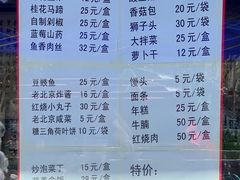 桂花马蹄 25元/盒
自制剁椒 25元/盒
蓝莓山药 25元/盒
鱼香肉丝 32元/盒
香菇包 20元/袋
狮子头 30元/盒
大拌菜 25元/盒
萝卜干 12元/盒
豆豉鱼 25元/盒
老北京炸酱 16元/盒
红烧小丸子 30元/盒
老北京咸菜 5元/盒
糖三角荷叶饼 10元/袋
馒头 5元/袋
面条 5元/袋
年糕 25元/盒
牛腩 50元/盒
红烧肉 50元/盒
炒泡菜丁 15元/盒
28元/盒
特价：